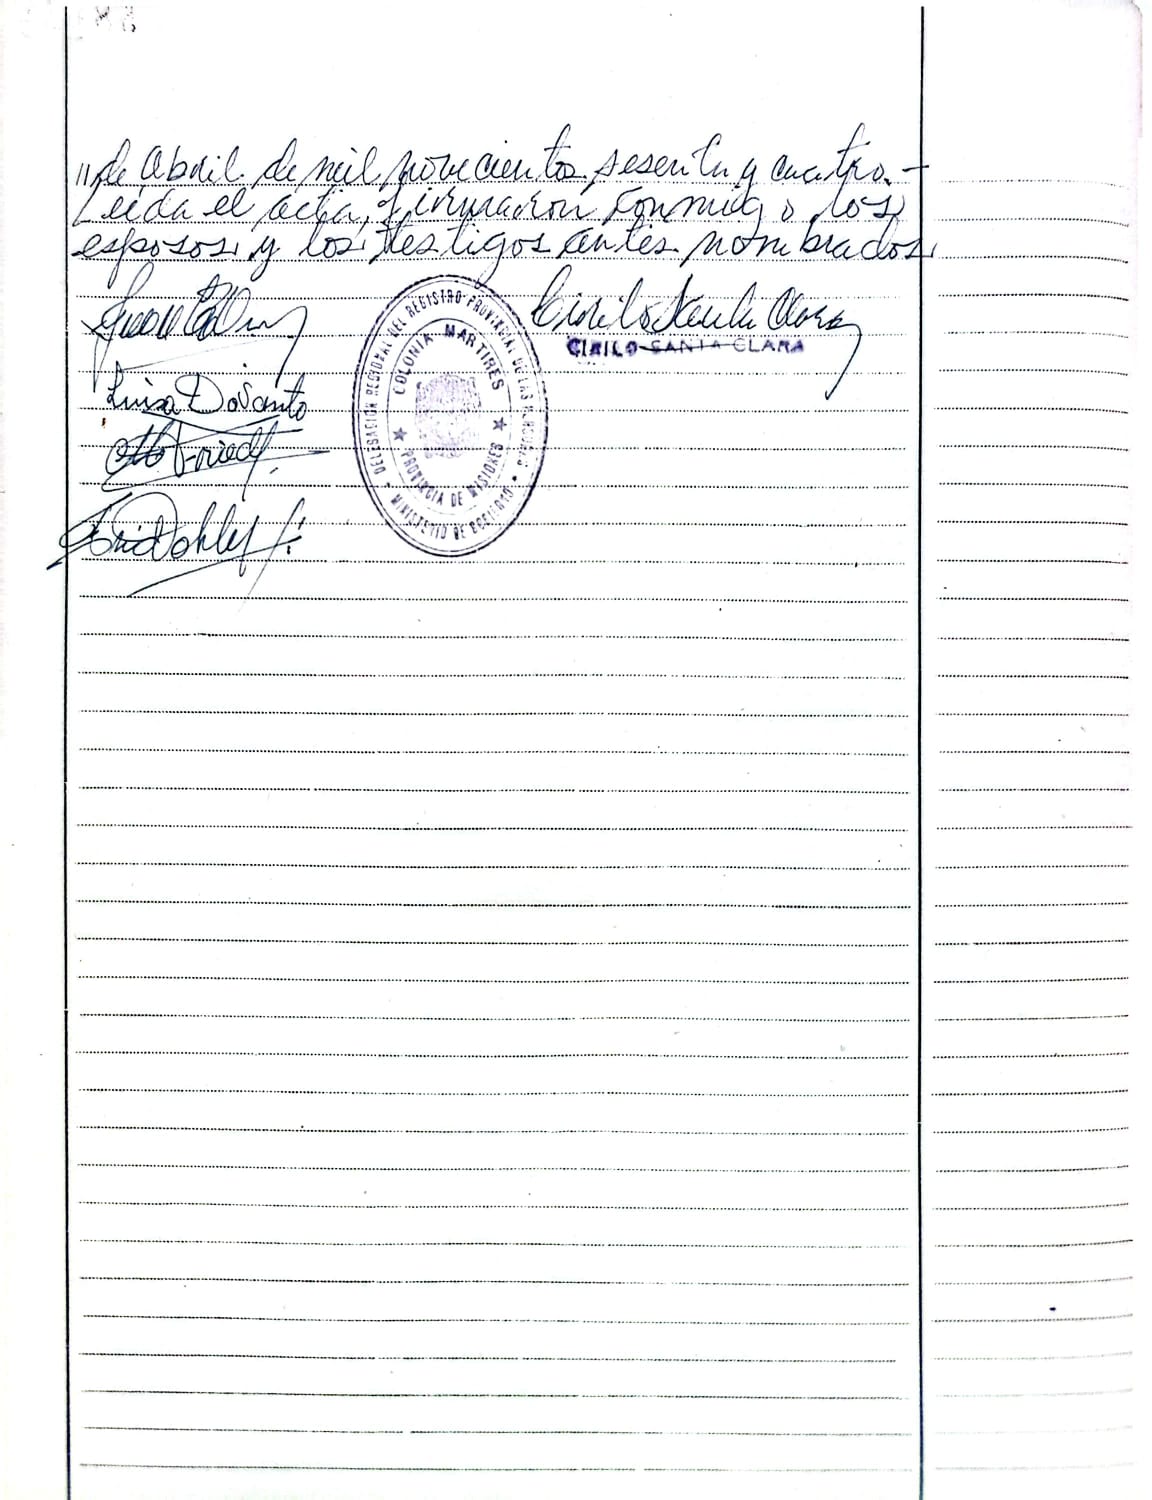 "de Abril de mil novecientos sesenta y cuatro.-
Leida el acta, firmaron conmigo los
esposos y los testigos antes nombrados.
Cirilo Santa Clara
CIRILO SANTA CLARA
DELEGACION REGIONAL DEL REGISTRO PROVINCIAL DE LAS PERSONAS
COLONIA MARTIRES
PROVINCIA DE MISIONES
MINISTERIO DE GOBIERNO
Luisa Do Santo